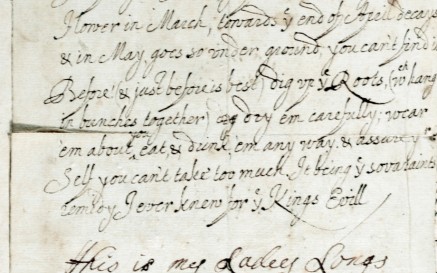 Flower in March, towards yͤ end of April decays
& in May, goes so under ground you can't find it
Before & just before is best) dig up yͤ Roots, (wͨʰ hang
in bunches together) dry em carefully; wear
em about, eat & drink em any way, & assure yͬ
Self you can't take too much It being yͤ sovaraint
remidy I ever knew for yͤ Kings Evill
this is my Ladees Longs